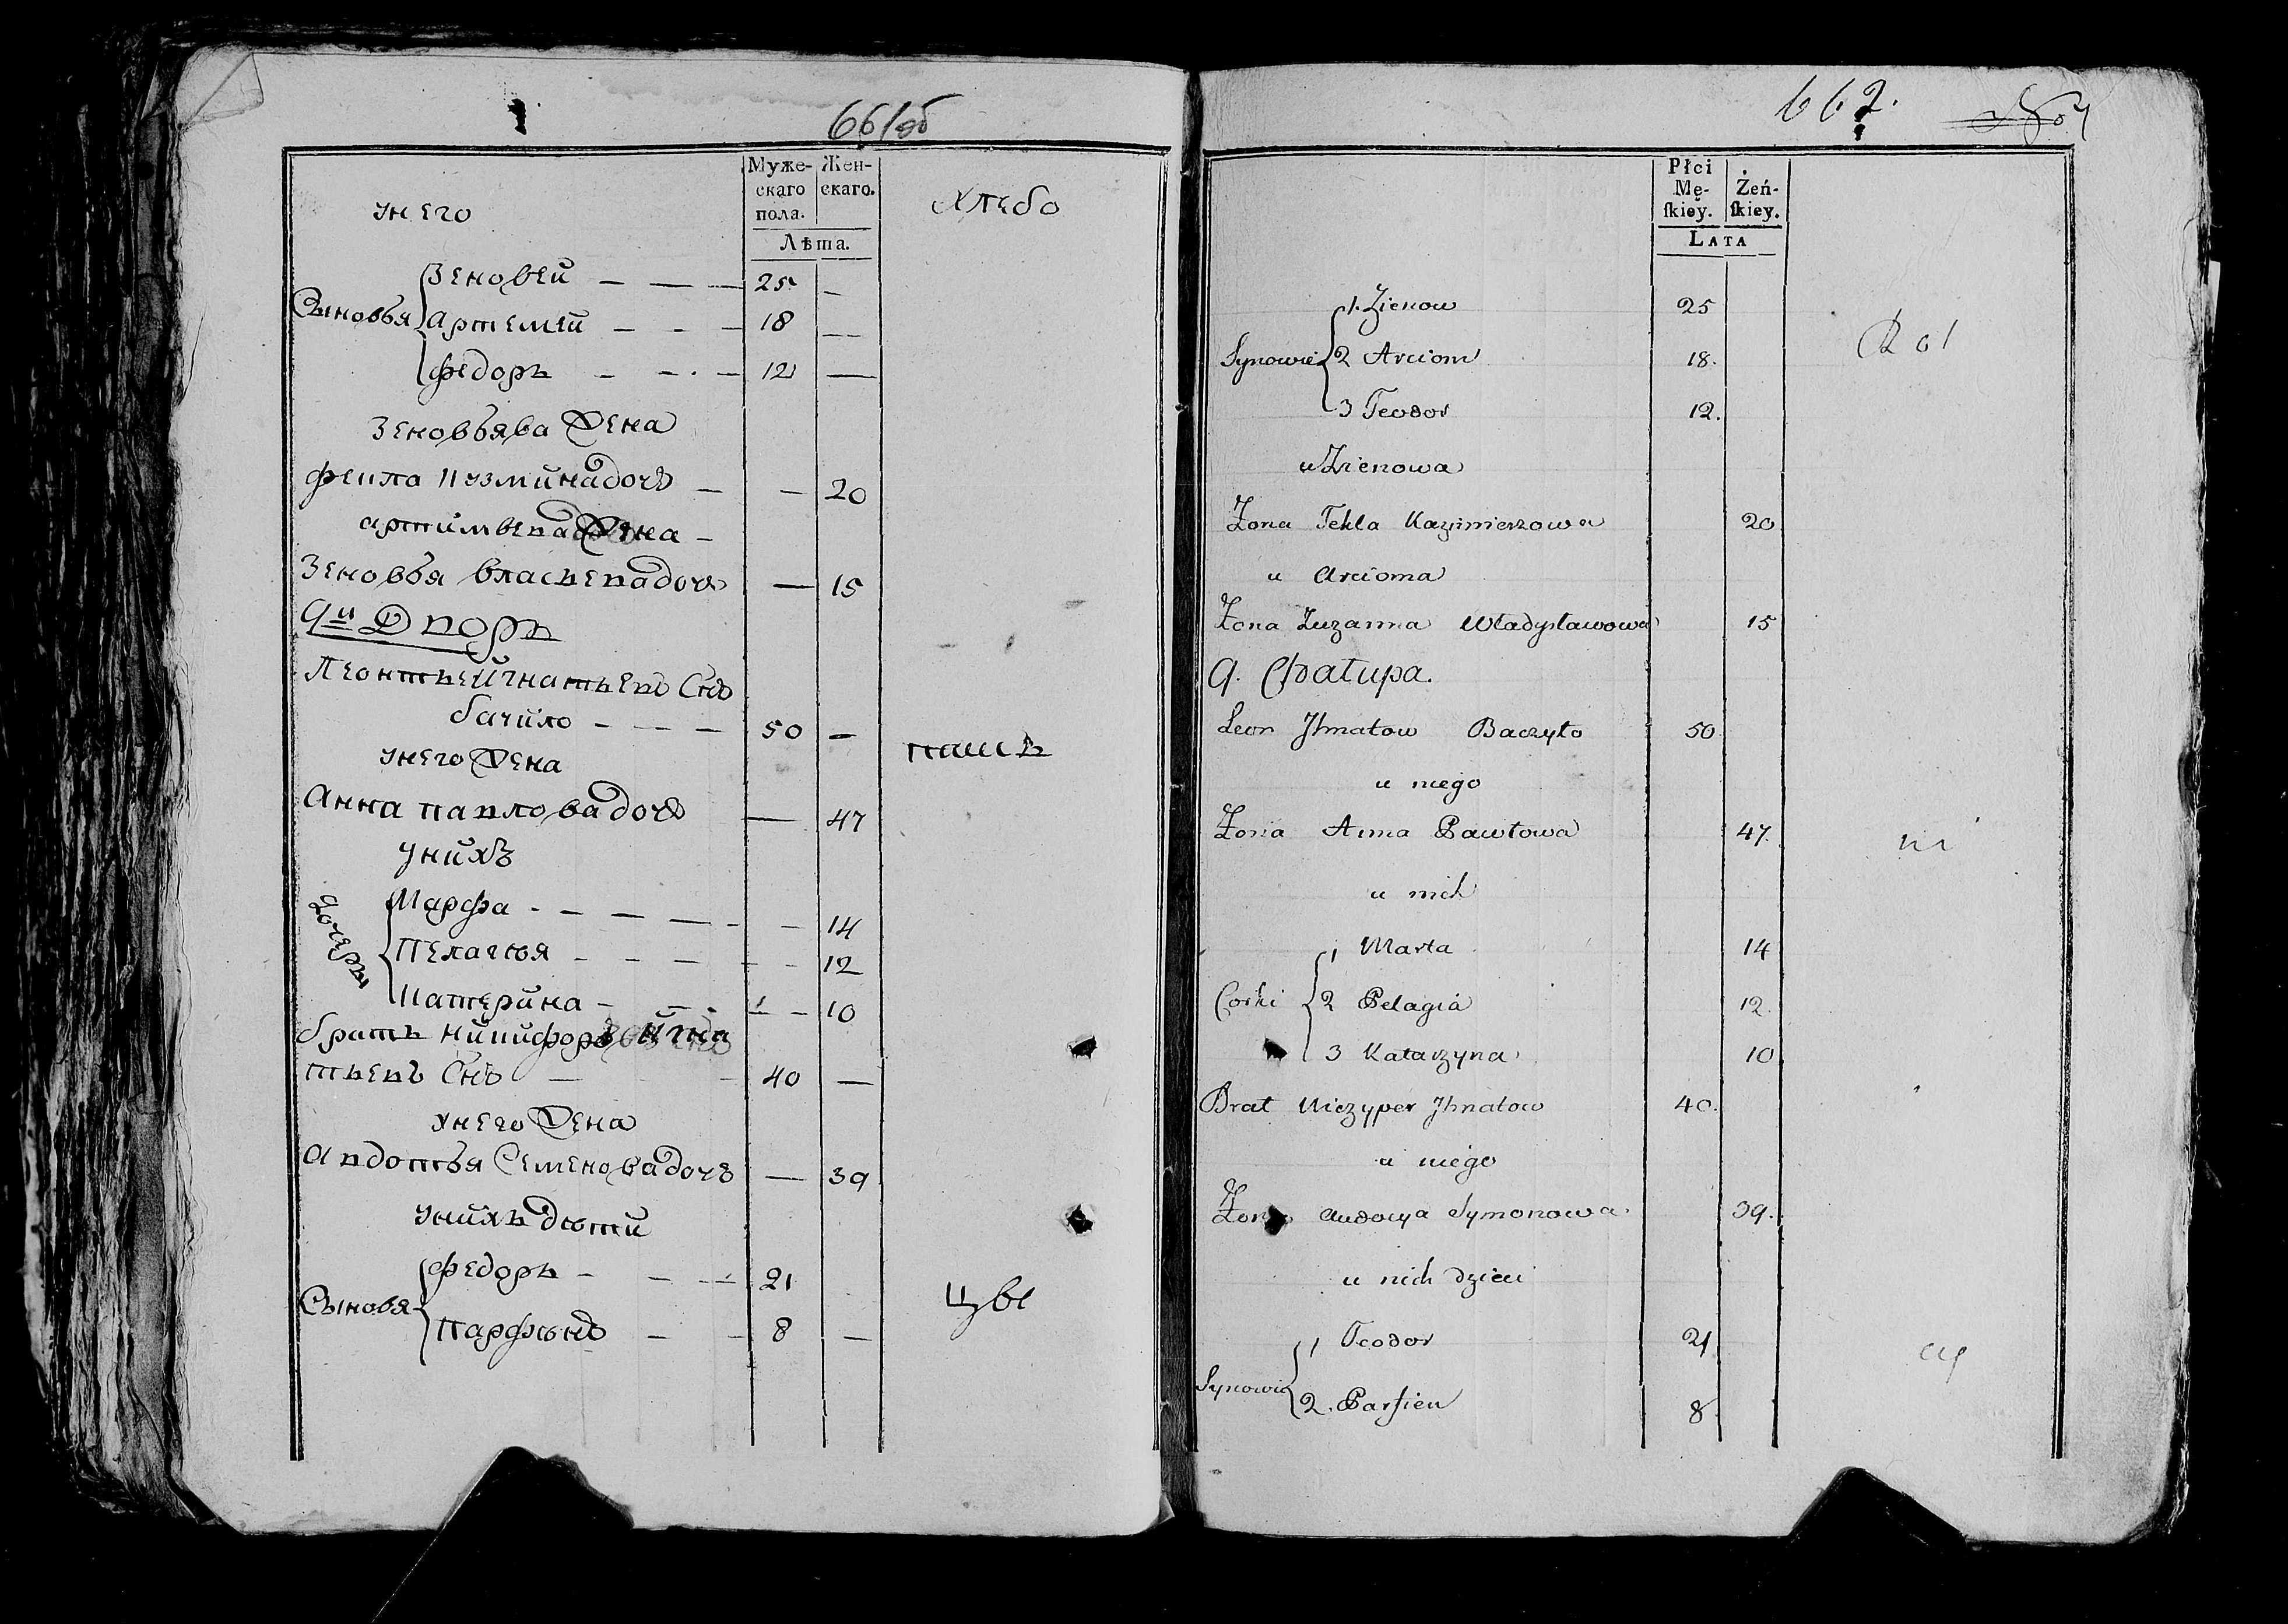 661об
Муже-
скаго
пола.
Жен-
скаго.
Лѣта.
унего
хлебо
Зеновей — — — 25 —
Сыновья Артемей — — — 18 —
Федоръ — — — 12 —
Зеновьява Жена
Фекла Кузмина дочь — — 20
Артимьева Жена —
Зеновья Власьева дочь — 15
9й Дворъ
Леонтей Игнатьевъ Снъ
бачило — — — 50 —
пашь
унего Жена
Анна павлова дочь — 47
унихъ
Марфа — — — — — 14
Дочеры Пелагѣя — — — — 12
Катерина — — — 10
братъ Никифоръ Игна
тьевъ Снъ — 40 —
унего Жена
Авдотья Семенова дочь — 39
унихъ дѣти
Федоръ — — — 21
цвы
Сыновя
Парфѣнъ — — 8 —
662.
Płci
Mę-
skiey.
Żeń-
skiey.
LATA
1. Zienow 25
Rol
Synowie 2 Arciom 18.
3 Teodor 12.
u Zienowa
Żona Tekla Kazimierzowa 20
u Arcioma
Żona Zuzanna Władysławowa 15
9. Chatupa.
Leon Ihnatow Baczyło 50
u niego
Żona Anna Pawłowa 47.
ni
u nich
1 Marta 14
Corki 2 Pelagia 12.
3 Katarzyna 10
Brat Niczyper Ihnatow 40.
u niego
Żona Audocya Symonowa 39.
u nich dzieci
1 Teodor 21
cy
Synowie
2. Parfien 8.